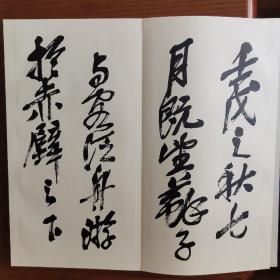 壬戌之秋七
月既望蘇子
与客泛舟游
於赤壁之下